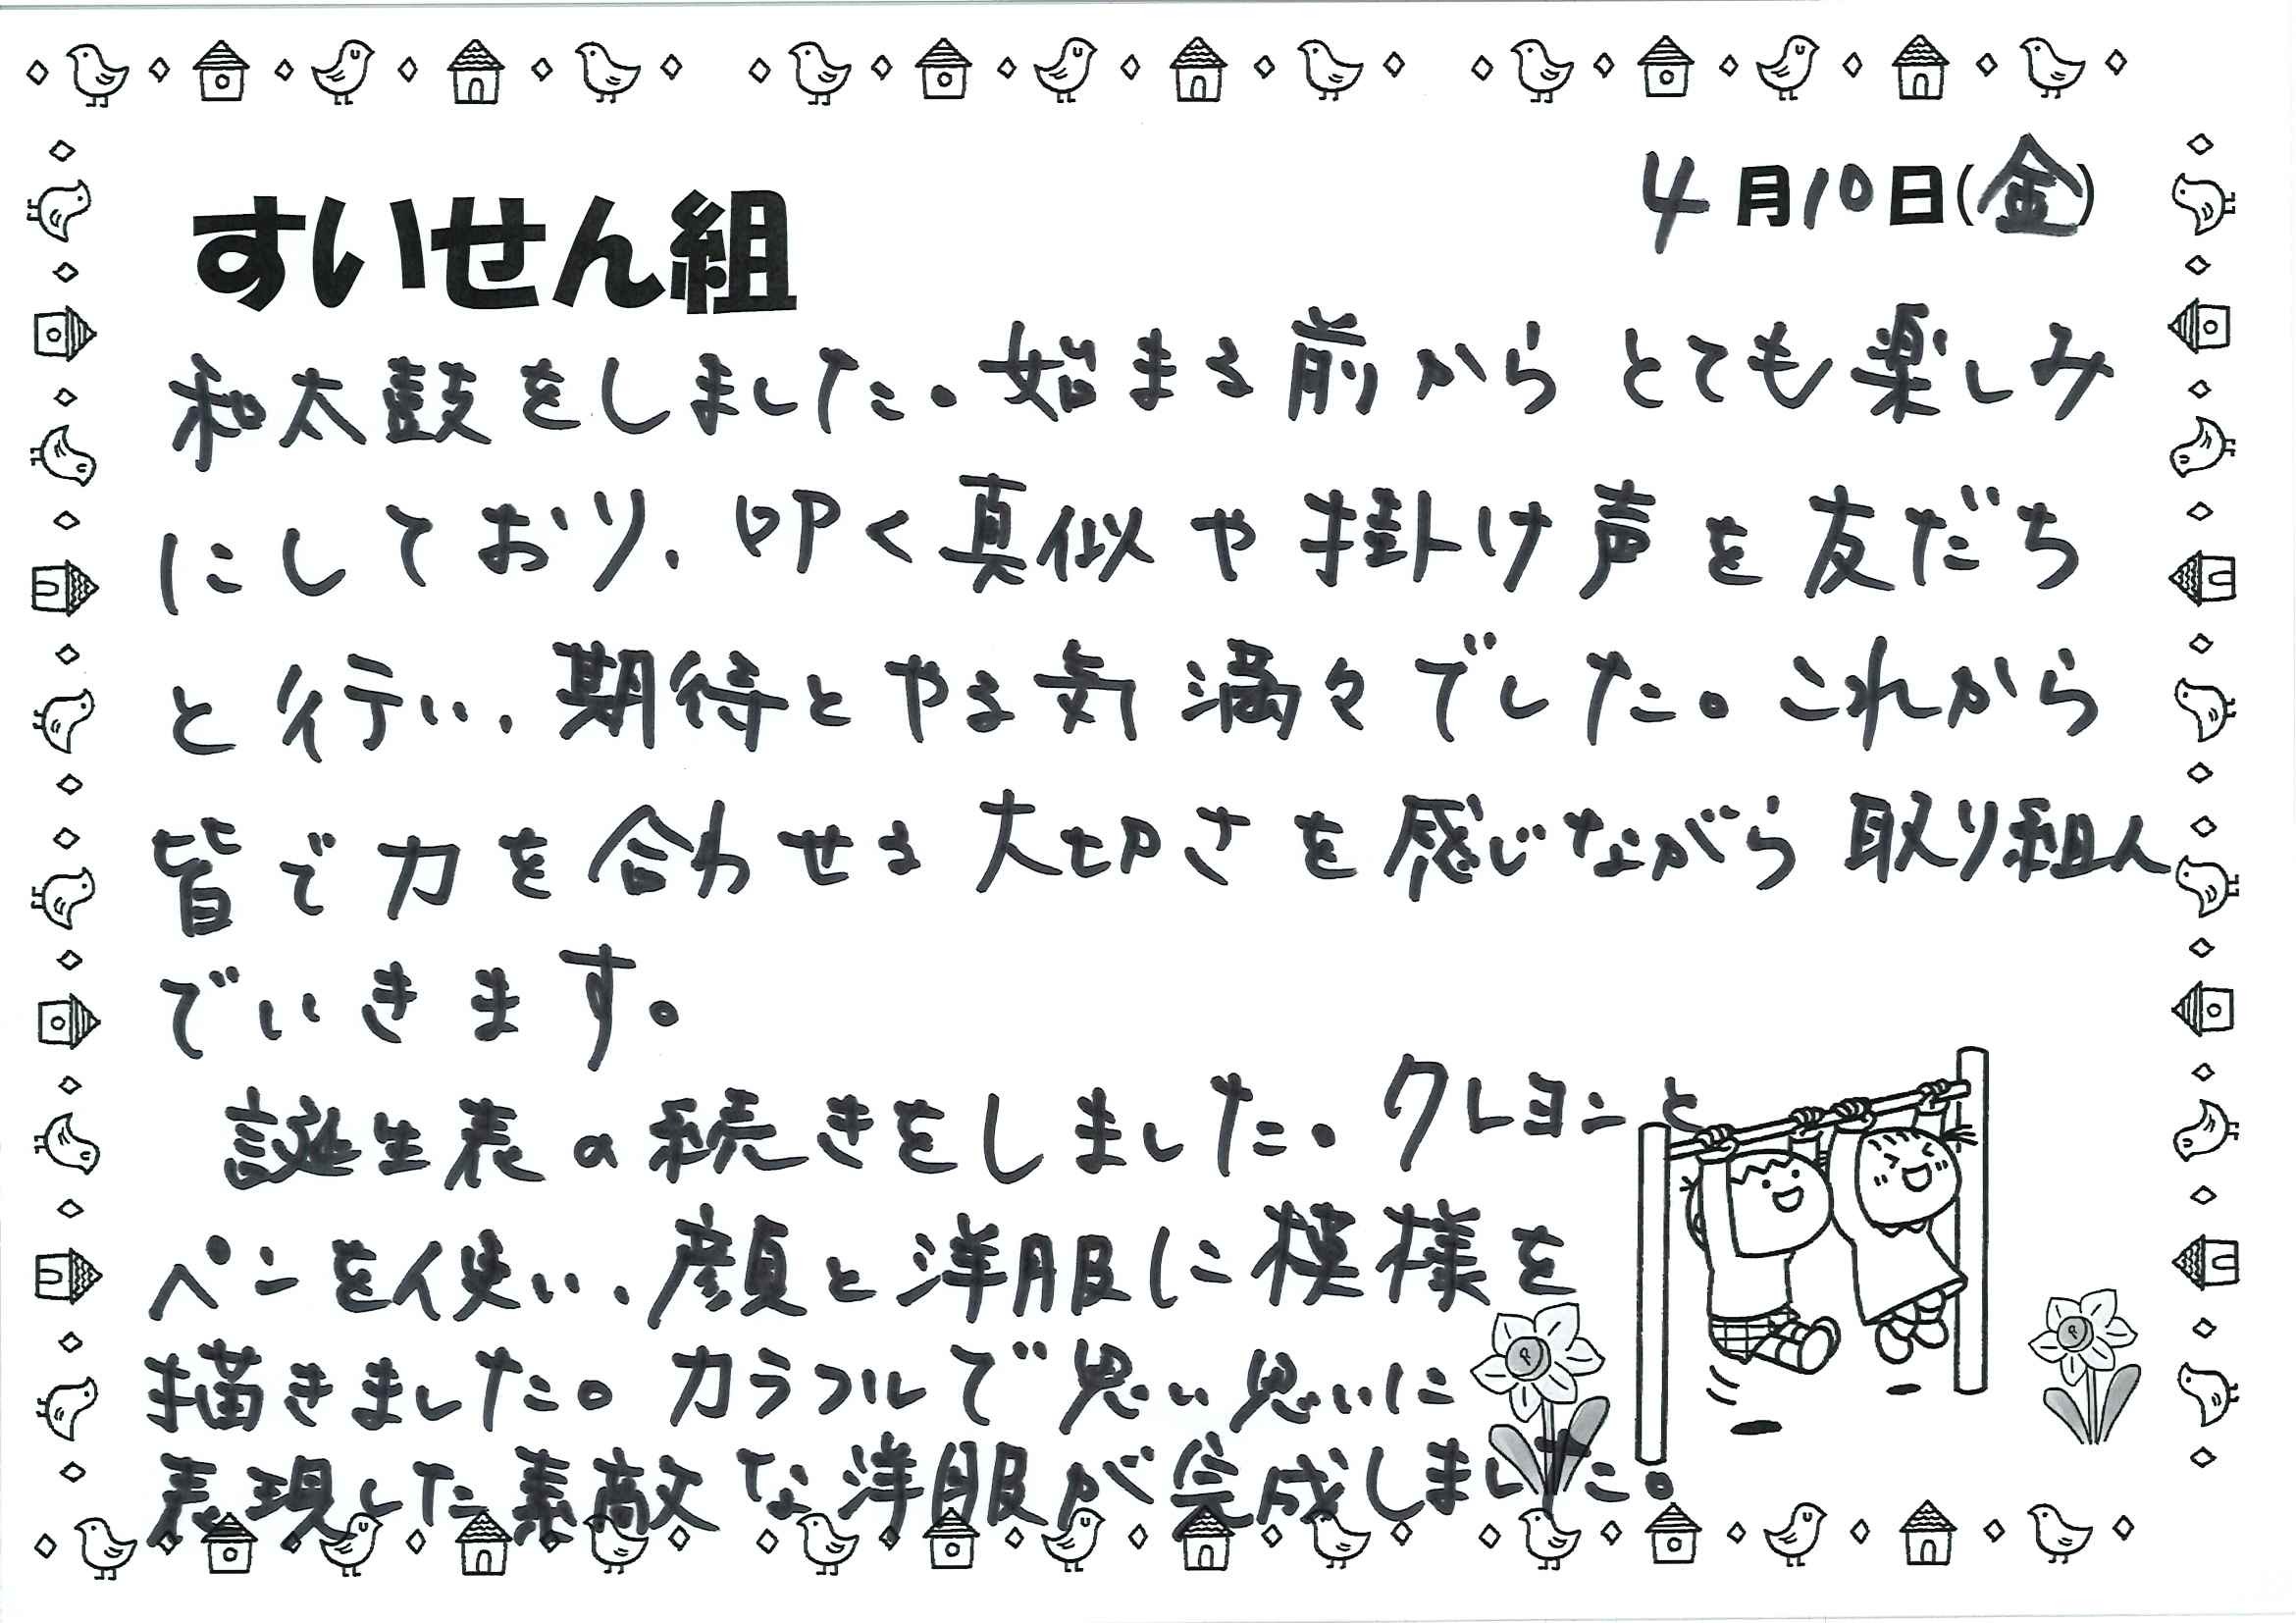 すいせん組
4月10日(金)
和太鼓をしました。始まる前からとても楽しみ
にしており、叩く真似や掛け声を友だち
と行い、期待とやる気満々でした。これから
皆で力を合わせる大切さを感じながら取り組ん
でいきます。
誕生表の続きをしました。クレヨンと
ペンを使い、顔と洋服に模様を
描きました。カラフルで思い思いに
表現した素敵な洋服が完成しました。